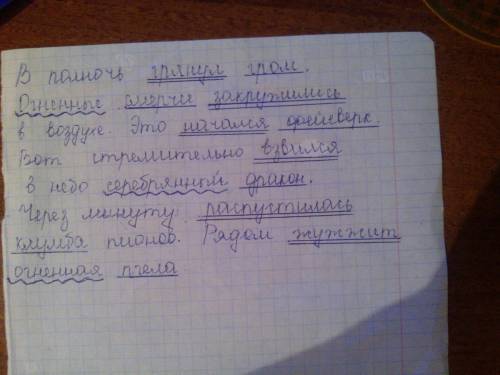 В полночь грянул гром.
Огненные смерчи закружились
в воздухе. Это начался фейерверк.
Вот стремительно взвился
в небо серебрянной дракон.
Через минуту распустилась
клумба пионов. Рядом жужжит
огненная пчела